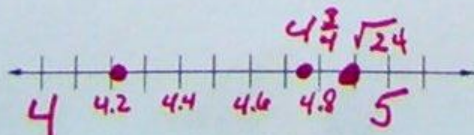 4¾ √24
4 4.2 4.4 4.6 4.8 5